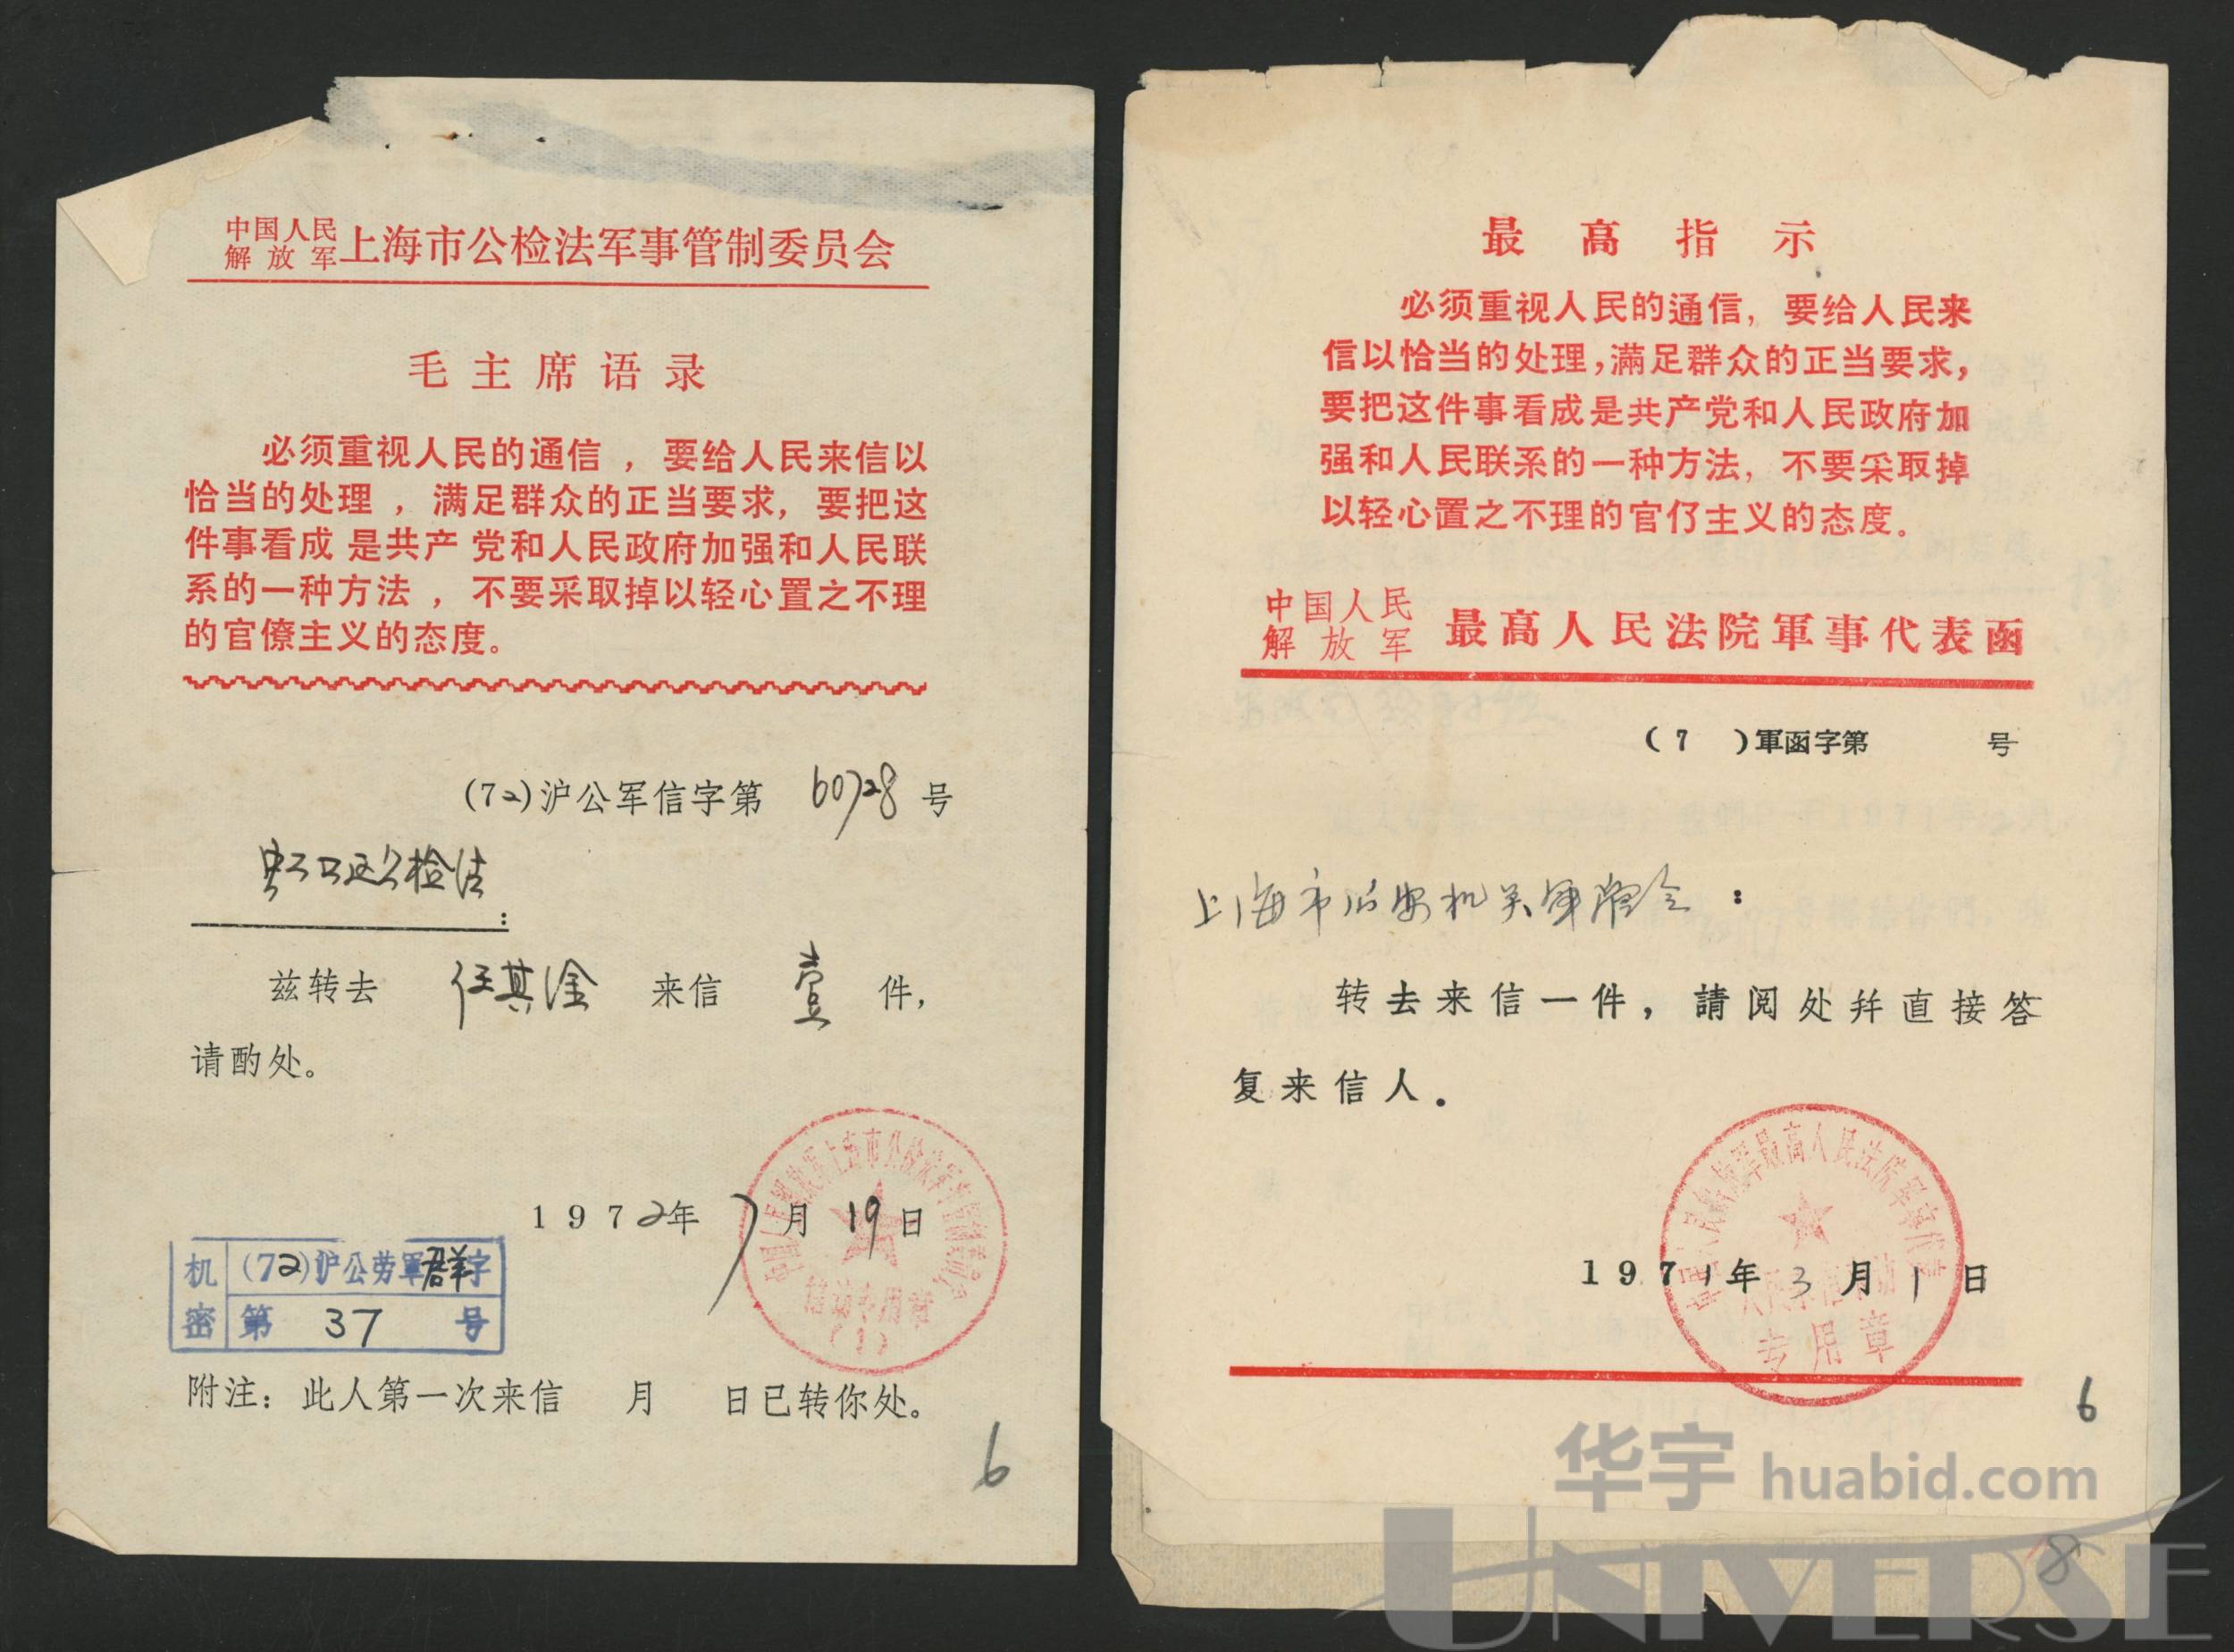 中国人民
解放军 上海市公检法军事管制委员会
毛主席语录
必须重视人民的通信，要给人民来信以
恰当的处理，满足群众的正当要求，要把这
件事看成是共产党和人民政府加强和人民联
系的一种方法，不要采取掉以轻心置之不理
的官僚主义的态度。
(72)沪公军信字第 60728 号
虹口区公检法：
兹转去 任其淦 来信 壹 件，
请酌处。
中国人民解放军上海市公检法军事管制委员会
信访专用章
(1)
1972年7月19日
机密 (72)沪公劳軍群字
第 37 号
附注：此人第一次来信 月 日已转你处。
6
最高指示
必须重视人民的通信，要给人民来
信以恰当的处理，满足群众的正当要求，
要把这件事看成是共产党和人民政府加
强和人民联系的一种方法，不要采取掉
以轻心置之不理的官仃主义的态度。
中国人民
解放军 最高人民法院軍事代表函
(7 )軍函字第 号
上海市公安机关军管会：
转去来信一件，請阅处并直接答
复来信人．
中国人民解放军最高人民法院军事代表
专用章
1971年3月1日
6
8
华宇 huabid.com
UNIVERSE